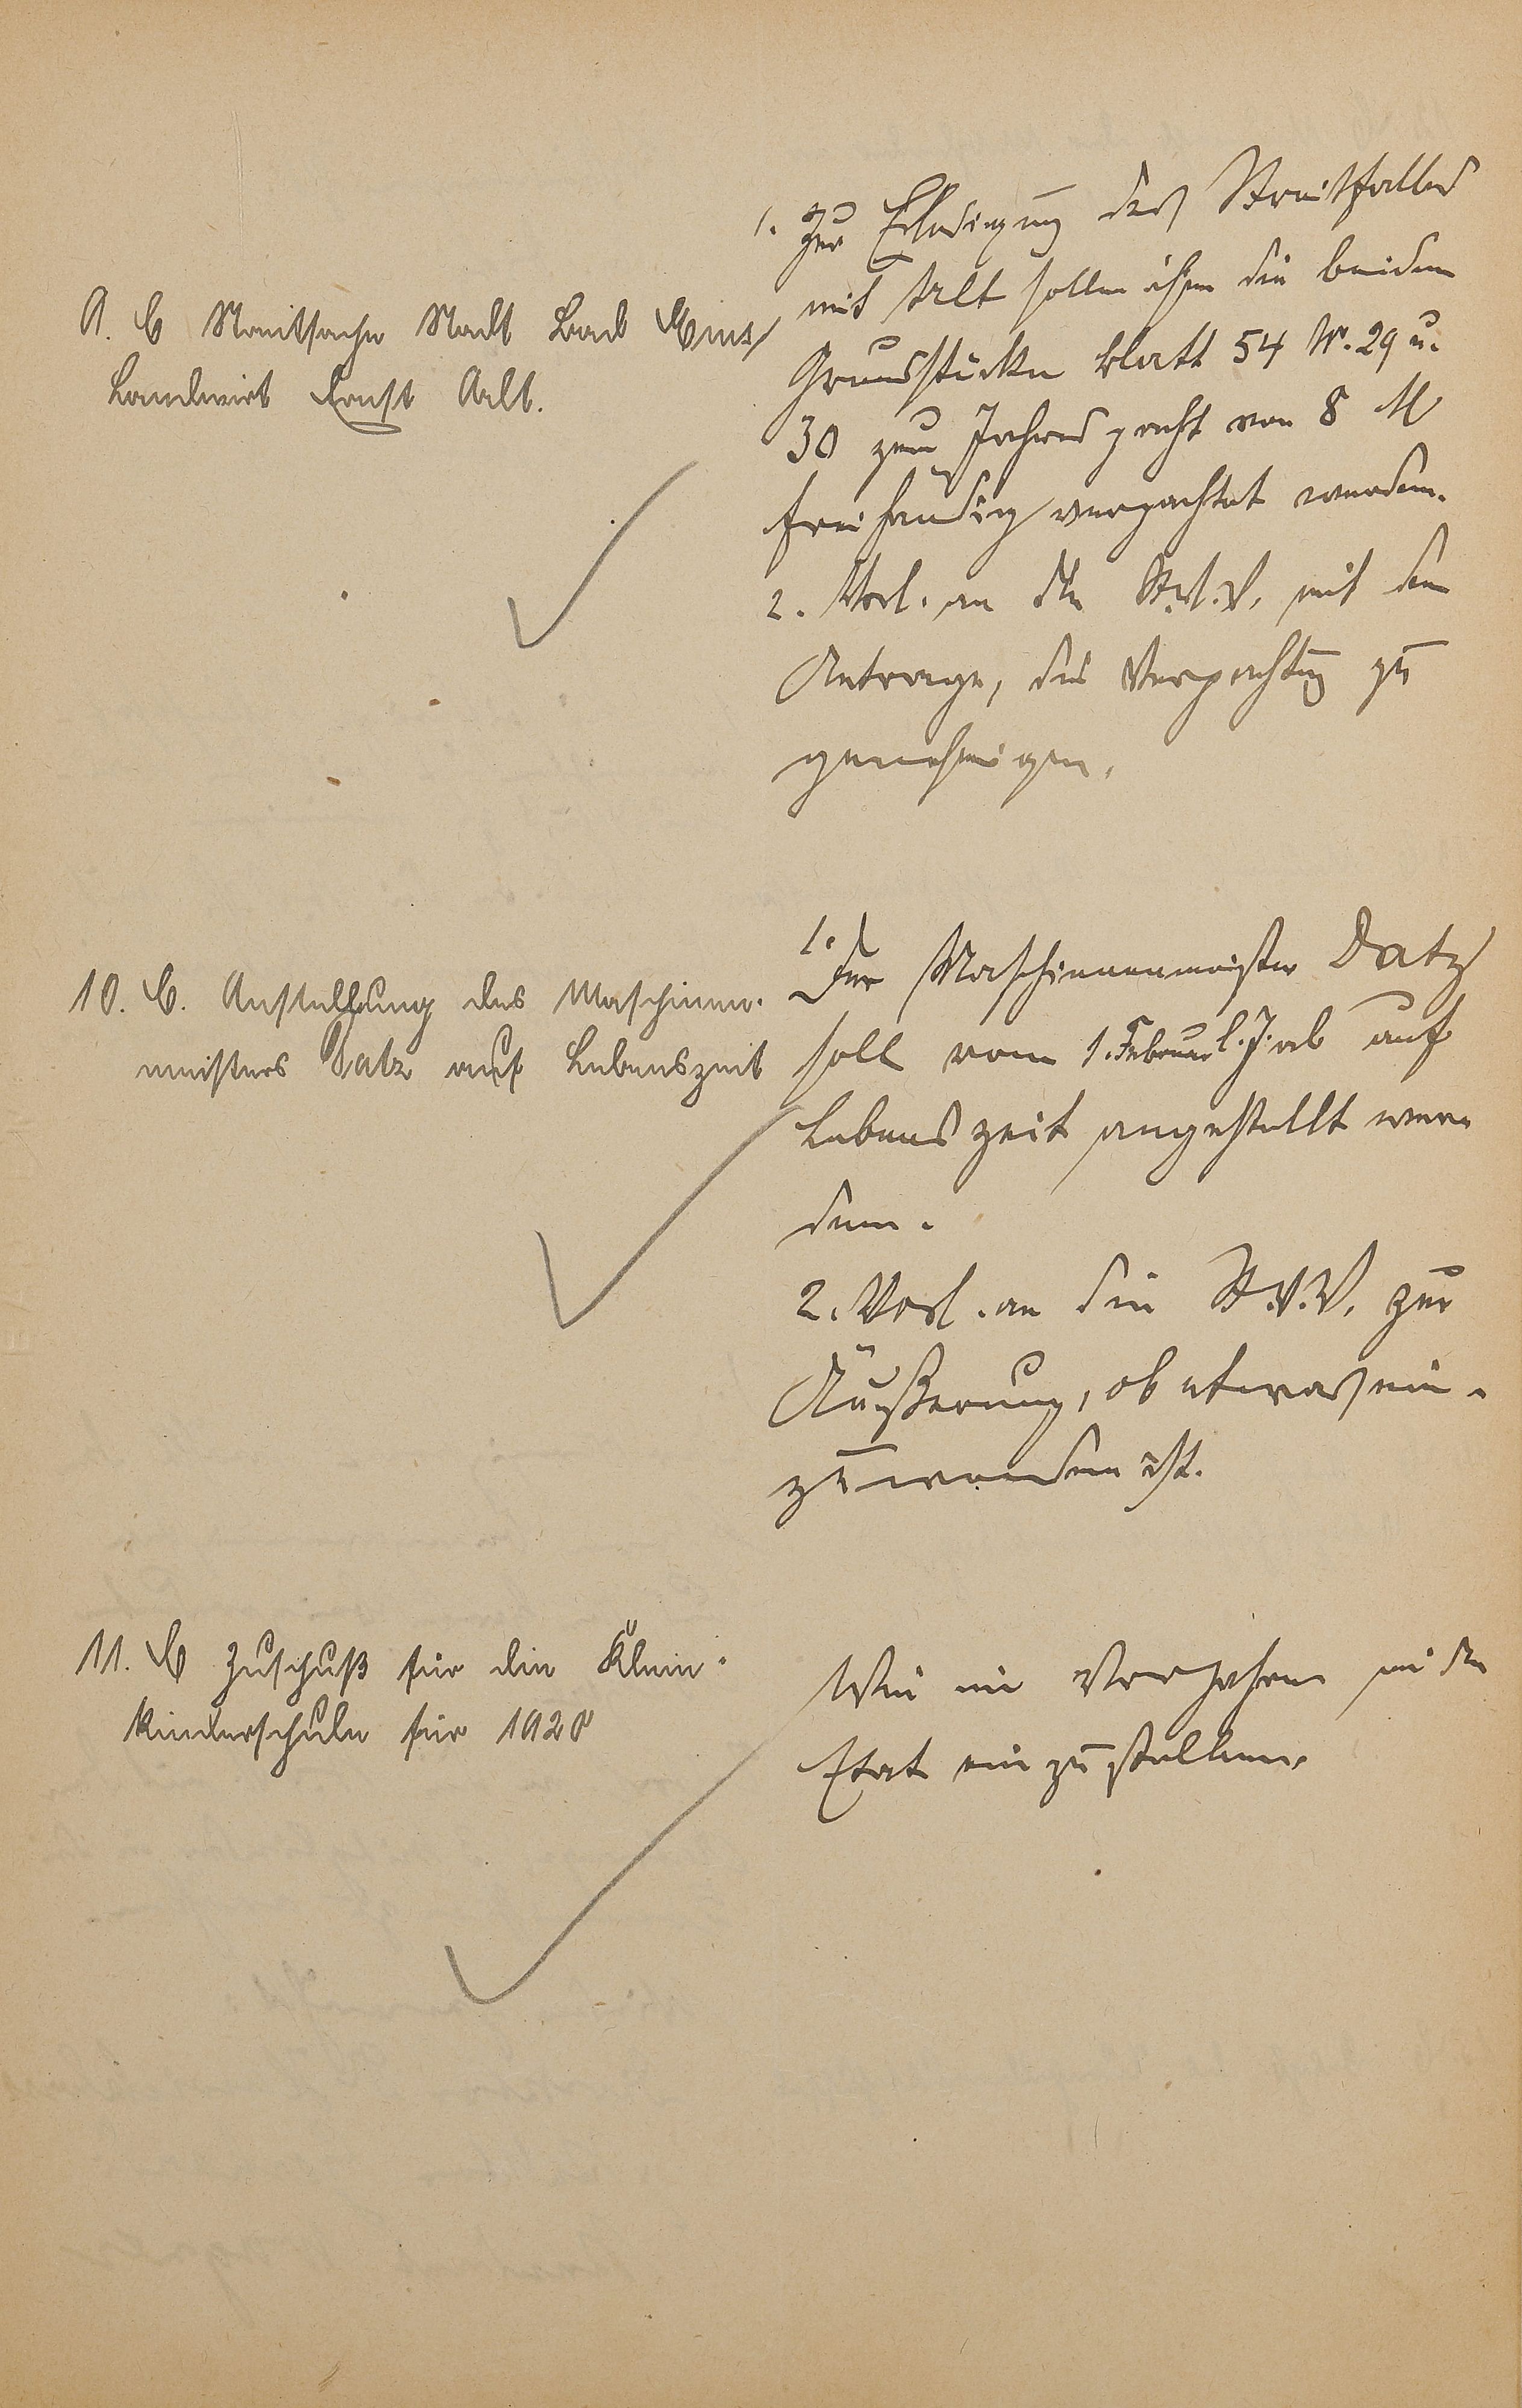 9. C Streitsache Stadt Bad Ems/
Landwirt Ernst Arlt.
1. Zur Erledigung des Streitfalles
mit Arlt sollen ihm die beiden
Grundstücke Blatt 54 Nr. 29 u.
30 zum Jahrespacht von 8 M
freihändig verpachtet werden.
2. Vorl. an die St.V.V. mit dem
Antrage, die Verpachtung zu
genehmigen.
10. C. Anstellung des Maschinen-
meisters Datz auf Lebenszeit
1. Der Maschinenmeister Datz
soll vom 1. Februar l. J. ab auf
Lebenszeit angestellt wer-
den.
2. Vorl. an die St.V.V. zur
Äußerung, ob etwas ein-
zuwenden ist.
11. C Zuschuß für die Klein-
kinderschule für 1920
Wie im Vorjahre in den
Etat einzustellen.